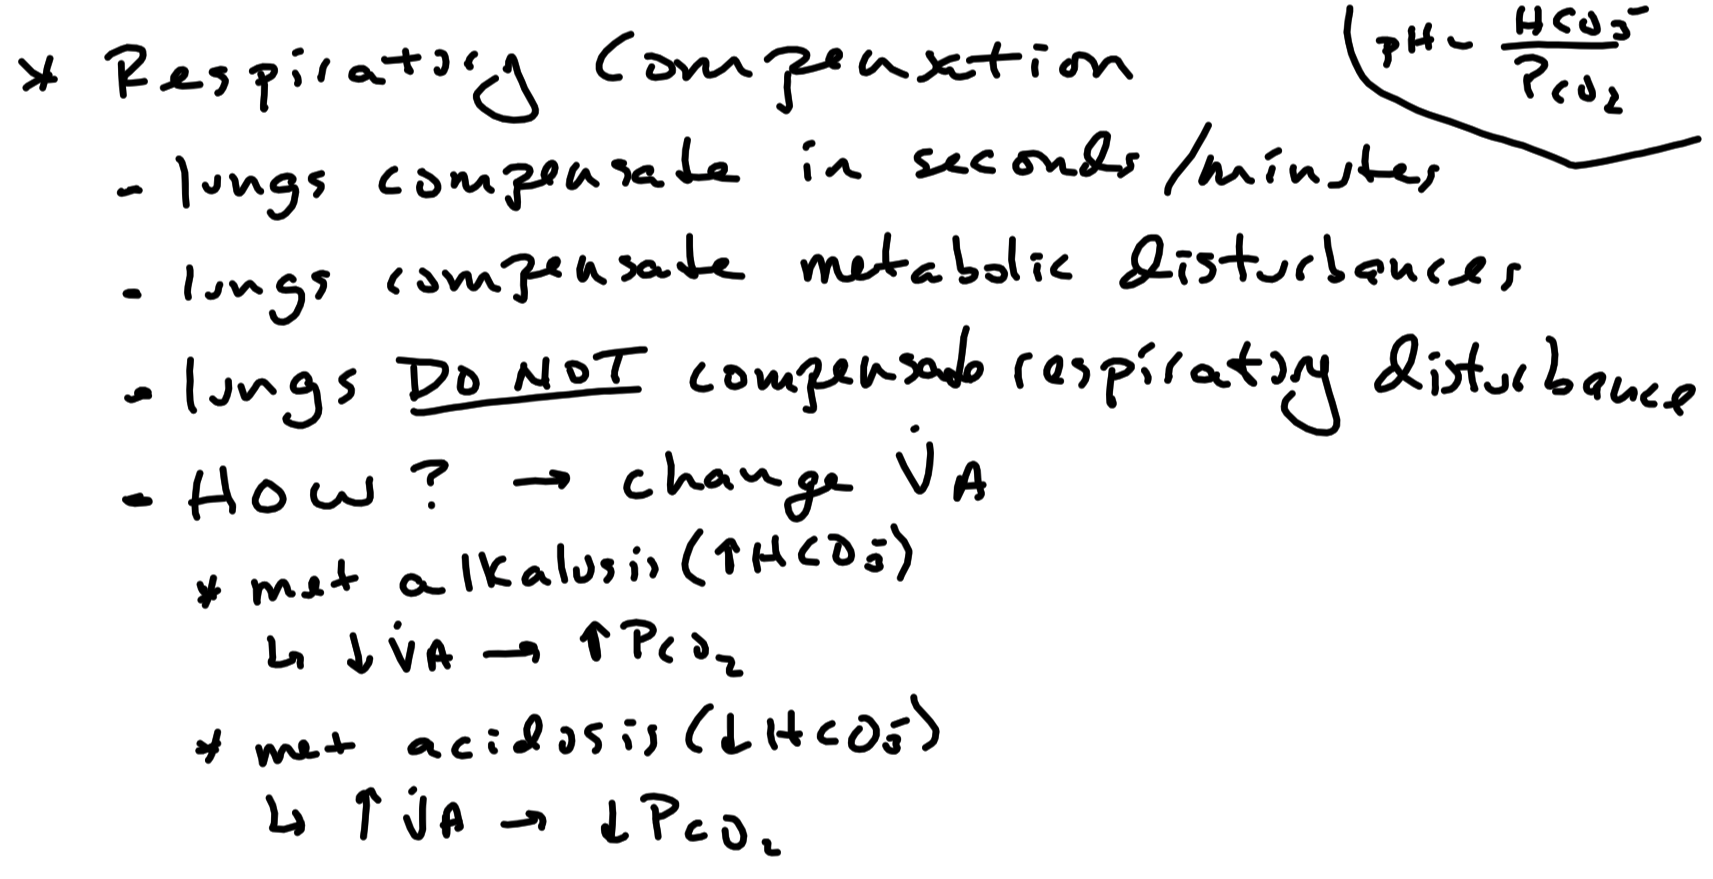 * Respiratory Compensation
pH ~ HCO3-
PCO2
- lungs compensate in seconds/minutes
- lungs compensate metabolic disturbances
- lungs DO NOT compensate respiratory disturbance
- How? → change V̇A
* met alkalosis (↑HCO3-)
↳ ↓ V̇A → ↑ PCO2
* met acidosis (↓HCO3-)
↳ ↑ V̇A → ↓ PCO2